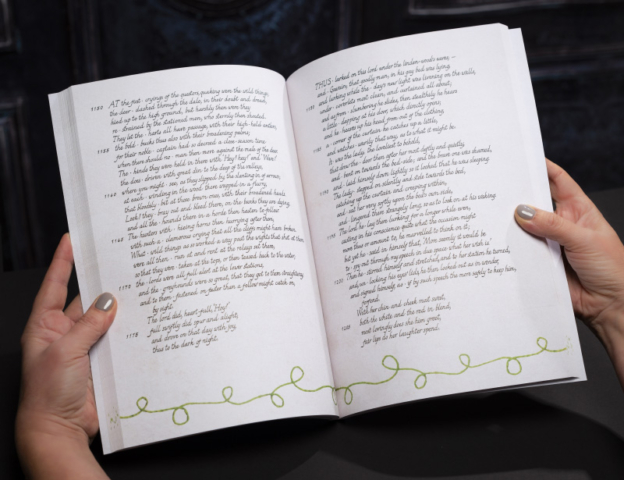 1150 AT the first cryings of the questors, quaking were the wild things;
the deer dashed through the dale, in their doubt and dread,
hied up to the high ground, but hastily then were they
restrained by the stationed men, who sternly them shouted.
They let the harts all have passage, with their high-held antlers,
1155 the bold bucks thus also with their broadening palms;
for their noble captain had so decreed a close season time
when there should no man then move against the male of the deer.
The hinds they were held in there with 'Hey! hey!' and 'Ware!'
the does driven with great din to the deep of the valleys;
1160 where you might see, as they slipped by, the slanting in of arrows;
at each winding in the wood there whipped on a flurry,
that bloodily bit at those brown ones, with their broadened heads.
Look! they bray out and bleed there, on the banks they are dying,
and all the hounds them in a horde then hasten to follow
1165 the hunters with hissing horns then hurrying after them,
with such a clamorous crying that all the cliffs might have broken.
What wild things as so worked a way past the wights that shot at them
were all then run at and rent at the relays set them,
as that they were taken at the tops, or then teased back to the water,
1170 the lords were all full alert at the lower stations,
and the greyhounds were so great, that they get to them draughtway
and to them fastened in faster than a fellow might catch on,
by sight.
The lord did, heart full, 'Hey!'
1175 full swiftly did spur and alight;
and drove on that day with joy,
thus to the dark of night.
THUS larked on this lord under the linden-wood's eaves,
and Gawain, that goodly man, in his gay bed was lying,
and lurking while the day's new light was linning on the walls,
under coverlets most clean, and curtained all about;
and as from slumbering he slides, then stealthily he hears
a little dipping at his door which directly opens;
and he heaves up his head from out of the clothing,
1185 a corner of the curtain he catches up a little,
and watches warily that way, as to what it might be.
It was the lady, the loveliest to behold,
that drew the door then after her most deftly and quietly,
and bent on towards the bed-side; and the brave one was shamed,
1190 and laid himself down slightly as it looked that he was sleeping.
The lady stepped on silently and stole towards the bed,
catching up the curtain and creeping within,
and sat her very softly upon the bed's own side,
and lingered there strangely long, so as to look on at his waking
1195 The lord he lay there lurking for a longer while were,
casting in his conscience quite what the occasion might
mean thus or amount to; he marvelled to think on it;
but yet he said in himself that, 'More seemly it would be
to spy out through my speech in due space what her wish is.'
1200 Then he stirred himself and stretched, and to her station he turned,
and, unlocking his eyes' lids, he then looked out as in wonder,
and signed himself, as if by such speech the more safely to keep him,
so found.
With her chin and cheek most sweet,
1205 both the white and the red in blend,
most lovingly does she him greet,
fair lips do her laughter spend.